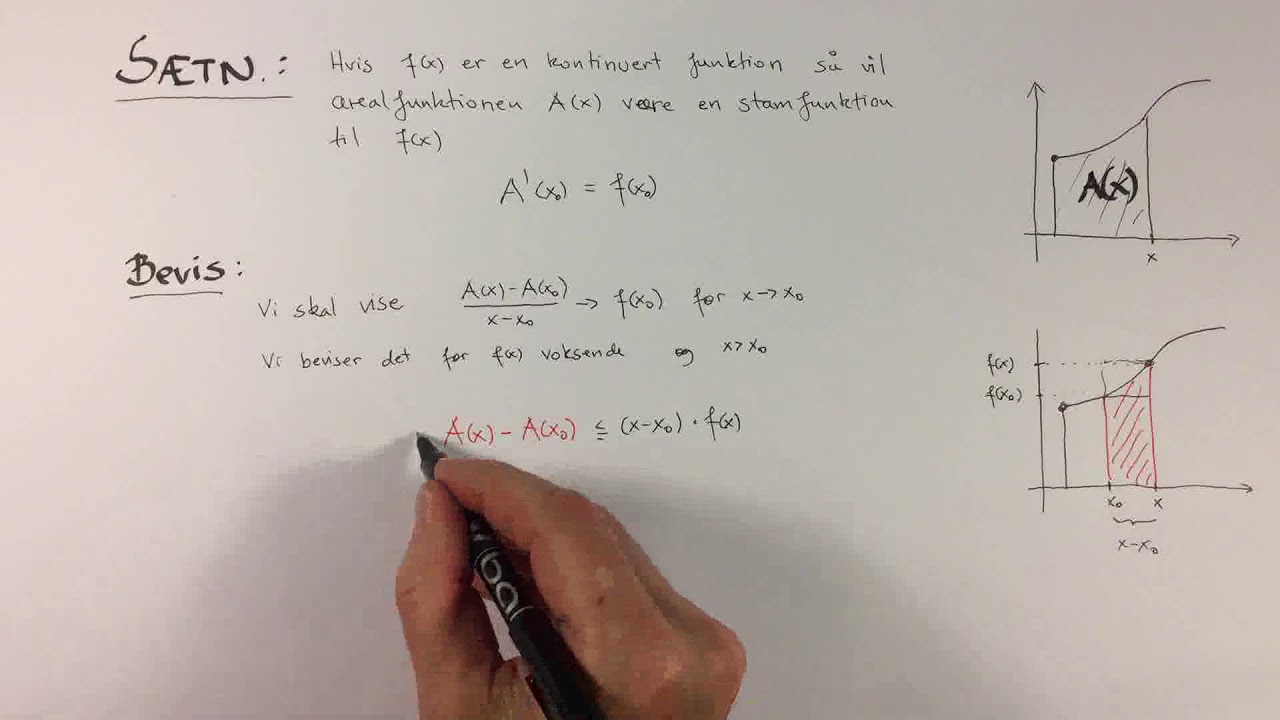 SÆTN.: Hvis f(x) er en kontinuert funktion så vil
arealfunktionen A(x) være en stamfunktion
til f(x)
A'(x₀) = f(x₀)
Bevis:
Vi skal vise (A(x) - A(x₀))/(x - x₀) → f(x₀) for x → x₀
Vi beviser det for f(x) voksende og x > x₀
A(x) - A(x₀) ≤ (x - x₀) · f(x)
A(x)
x
f(x)
f(x₀)
x₀ x
x - x₀